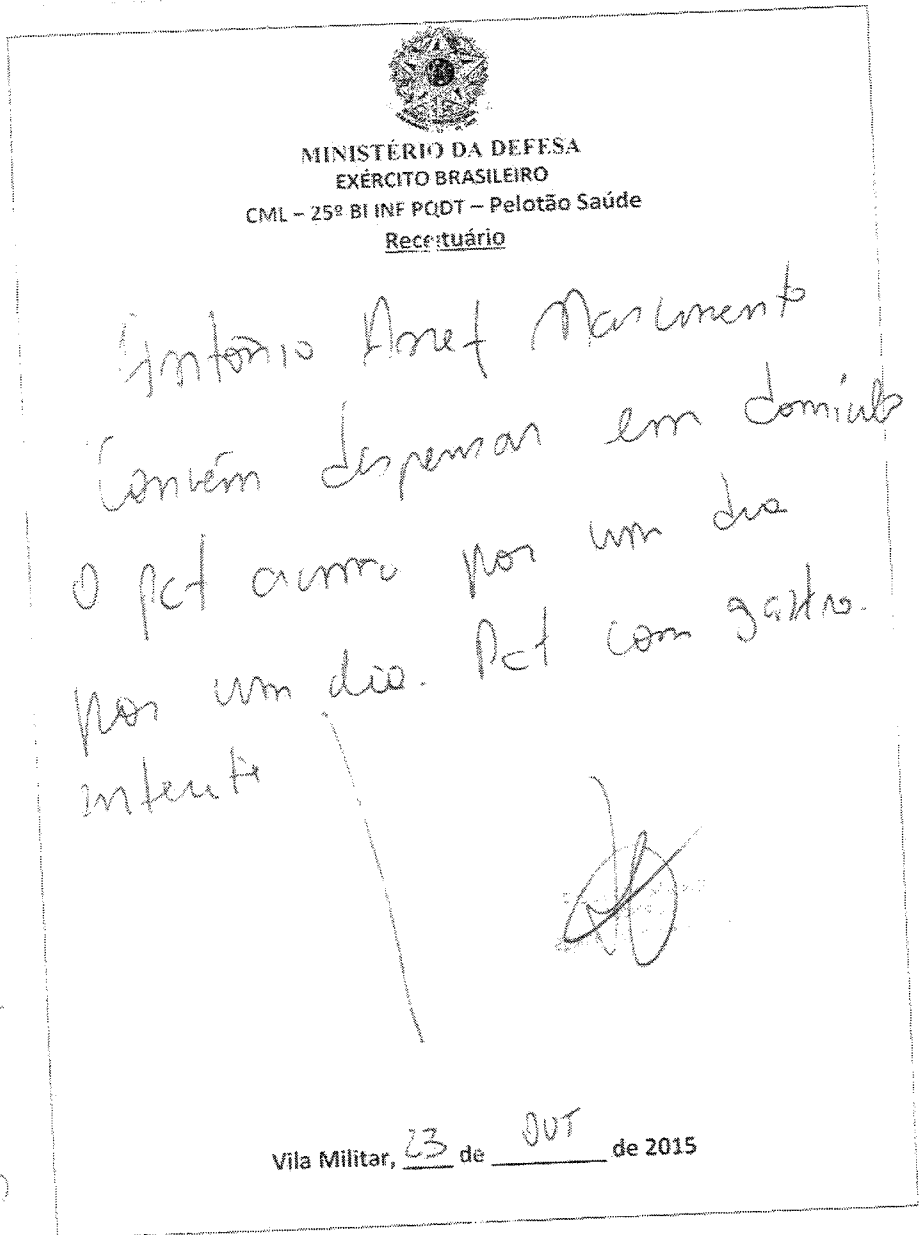 MINISTÉRIO DA DEFESA
EXÉRCITO BRASILEIRO
CML – 25º BI INF PQDT – Pelotão Saúde
Receituário
Antônio Nascimento
Convém dispensar em domicílio
O pct acima por um dia
por um dia. Pct com gastro.
enterite
Vila Militar, 23 de OUT de 2015